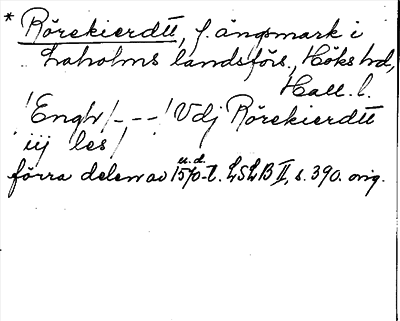 * Rörekierdtt, f. ängsmark i
Laholms landsförs., Höks hd,
Hall. l.
'Engh/ - - - ! Vdj Rörekierdtt
iij les/
u. d.
förra delen av 1570-t. LSLB II, s. 390. orig.